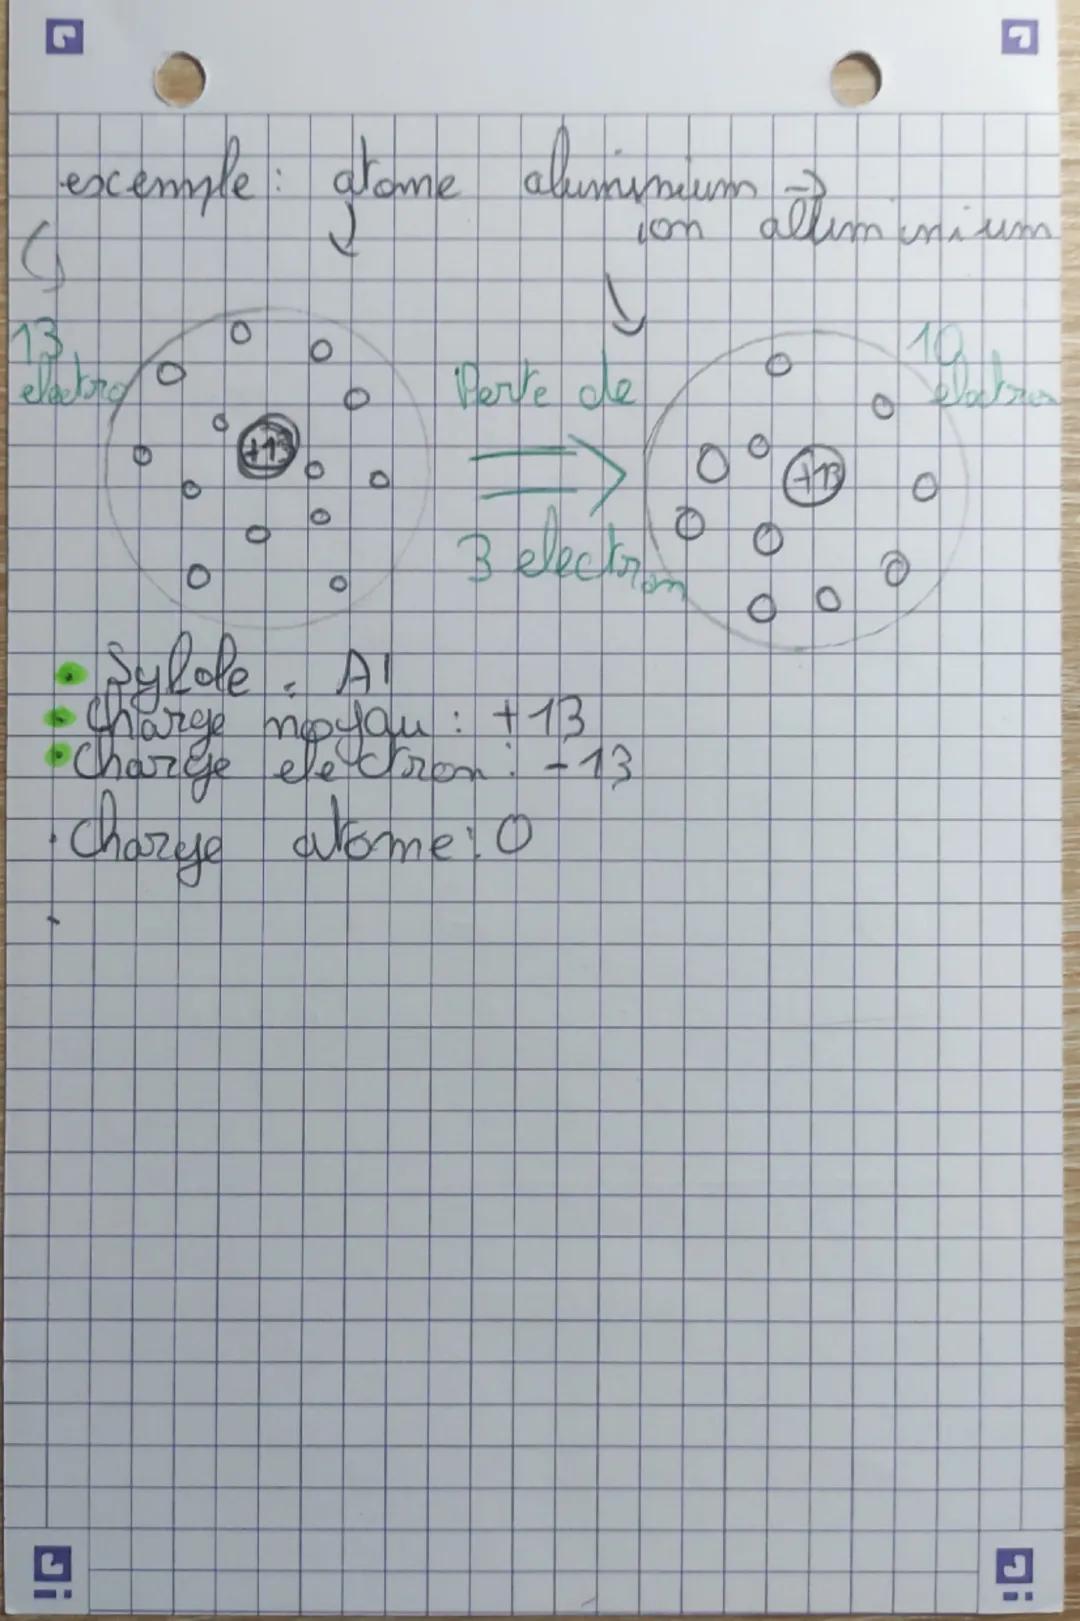 exemple : atome aluminium →
ion alluminium
13
electro
+13
Perte de
3 electron
10
electron
+13
• Sylole : Al
• Charge noyau : +13
• Charge electron : -13
. Charge atome : 0